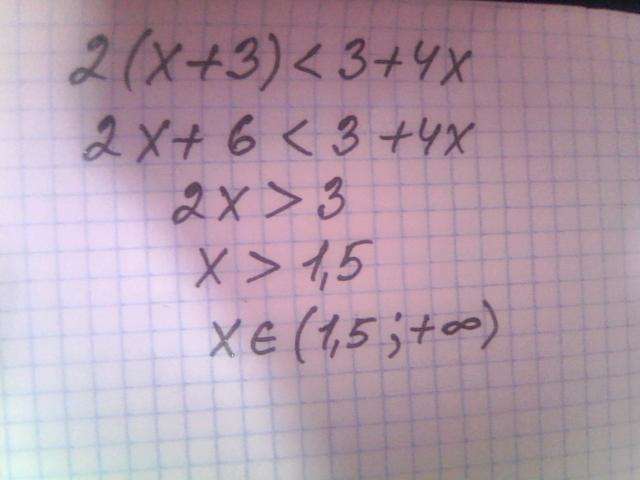 2(x+3)<3+4x
2x+6<3+4x
2x>3
x>1,5
x∈(1,5;+∞)